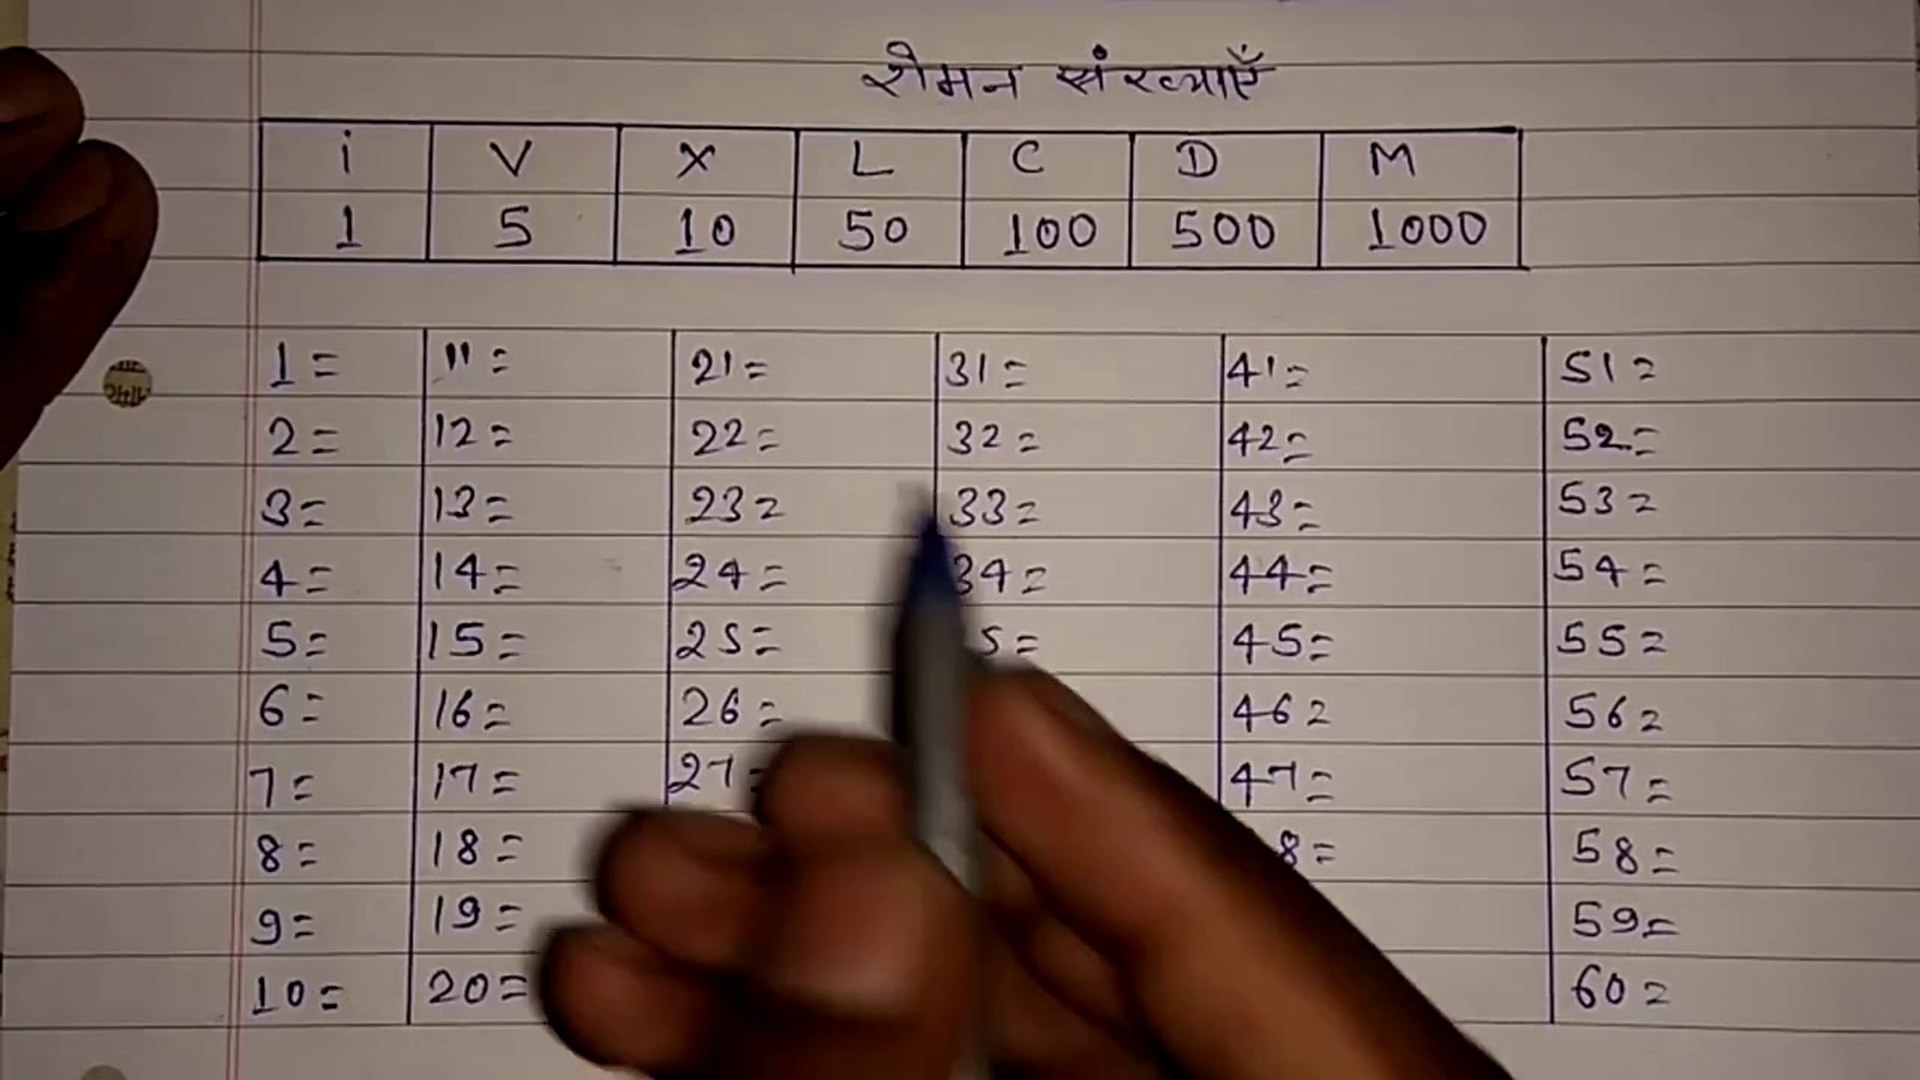 रोमन संख्याएँ
i V X L C D M
1 5 10 50 100 500 1000
1= 11= 21= 31= 41= 51=
2= 12= 22= 32= 42= 52=
3= 13= 23= 33= 43= 53=
4= 14= 24= 34= 44= 54=
5= 15= 25= 5= 45= 55=
6= 16= 26= 46= 56=
7= 17= 27= 47= 57=
8= 18= 8= 58=
9= 19= 59=
10= 20= 60=